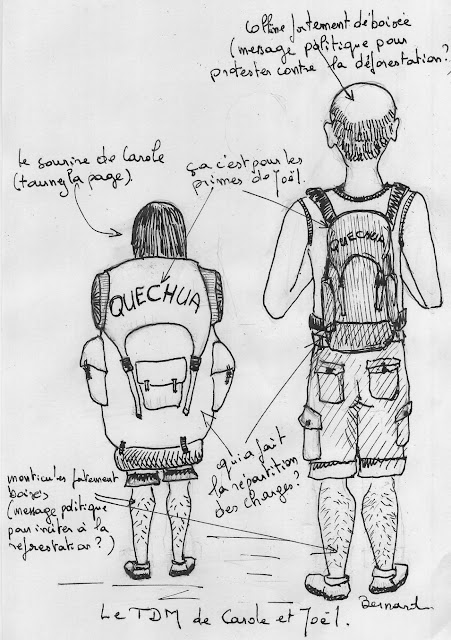 colline fortement déboisée
(message politique pour
protester contre la déforestation?)
Le sourire de Carole
(tournez la page).
ça c'est pour les
primes de Joël.
QUECHUA
QUECHUA
qui a fait
la répartition
des charges?
monticules fortement
boisés
(message politique
pour inciter à la
reforestation?)
Le TDM de Carole et Joël.
Bernard